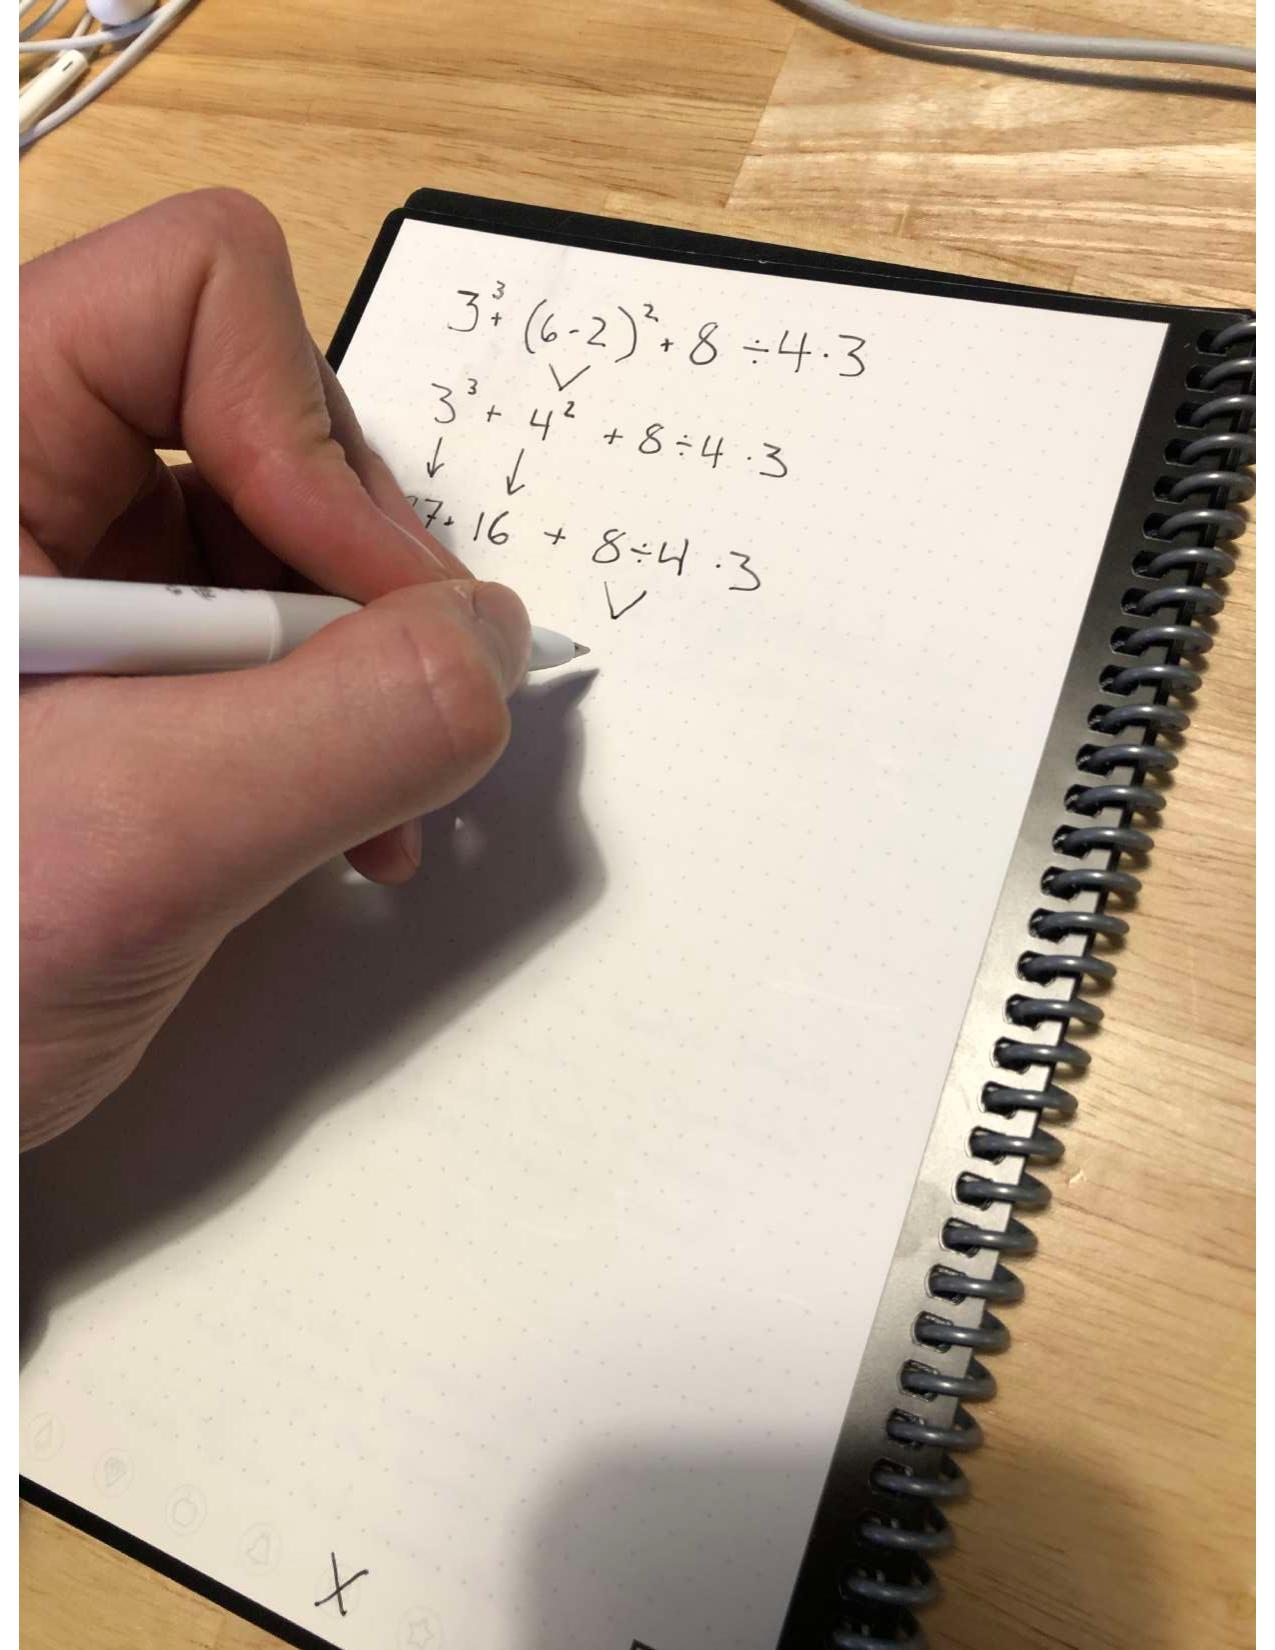 3³ + (6-2)² + 8 ÷ 4 · 3
3³ + 4² + 8 ÷ 4 · 3
7 + 16 + 8 ÷ 4 · 3
X